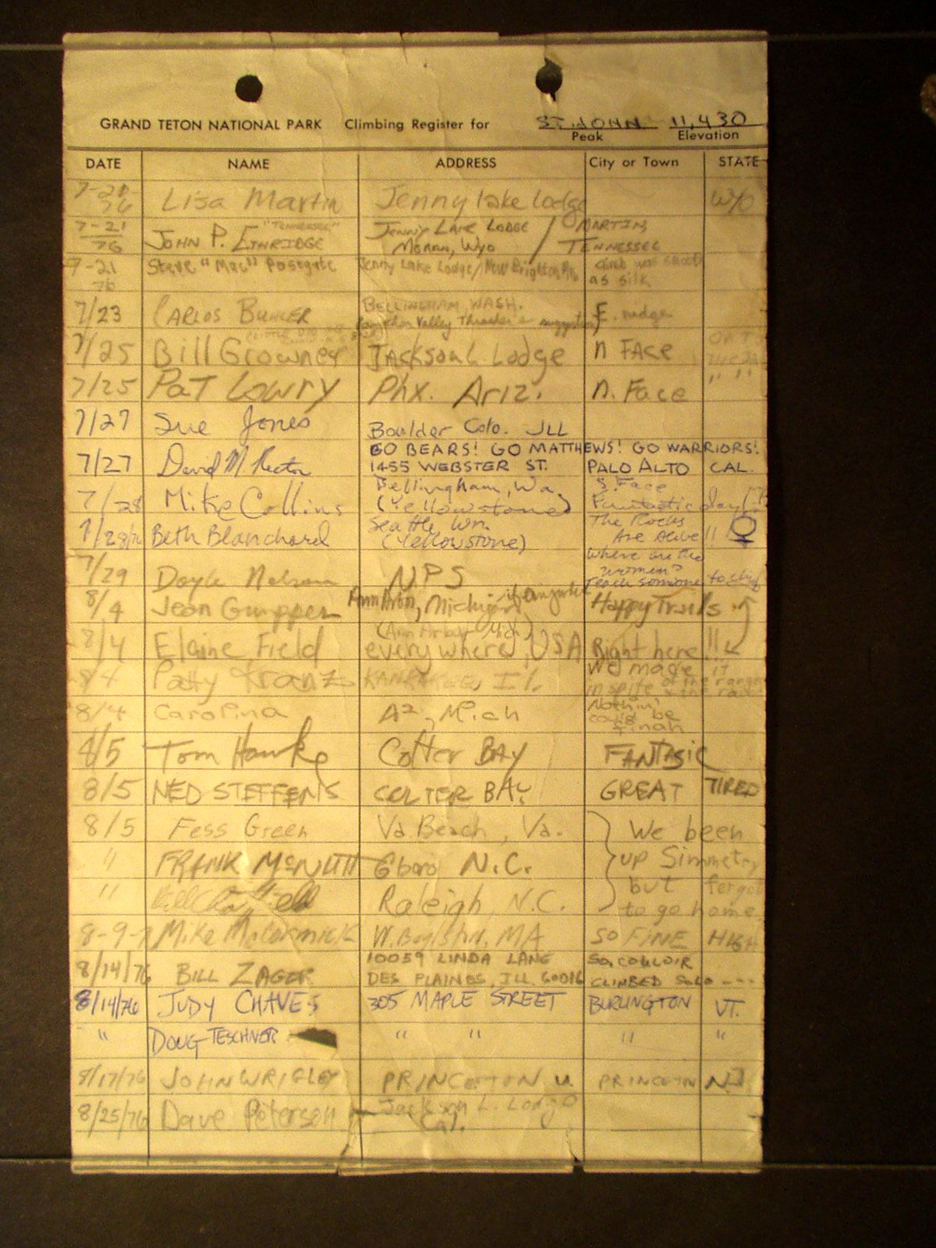 GRAND TETON NATIONAL PARK Climbing Register for ST. JOHN 11,430
Peak Elevation
DATE NAME ADDRESS City or Town STATE
7-21-76 Lisa Martin Jenny lake lodge WYO
7-21 76 JOHN P. "TENNESSEE" ETHRIDGE JENNY LAKE LODGE MORAN, WYO / MARTIN, TENNESSEE
7-21 76 Steve "Mac" Postgate Jenny Lake Lodge/New Brighton climb was smooth as silk
7/23 CARLOS BUHLER BELLINGHAM, WASH. E. ridge
7/25 Bill Growney Jackson L Lodge n FACE
7/25 PAT LOWRY Phx. Ariz. n. Face " "
7/27 Sue Jones Boulder Colo. JLL
GO BEARS! GO MATTHEWS! GO WARRIORS!
7/27 David M. Rector 1455 WEBSTER ST. PALO ALTO CAL.
7/28 Mike Collins Bellingham, Wa. (Yellowstone) S. Face Funtastic day!
7/28/76 Beth Blanchard Seattle, Wn. (Yellowstone) The Rocks Are Alive!! ♀
7/29 Doyle Nelson NPS where are the women? teach someone to climb
8/4 Jean Ann Arbor, Michigan, if anywhere Happy Trails
8/4 Elaine Field (Ann Arbor Mich) everywhere, USA Right here!!
8/4 Patty Kranz KANKAKEE, IL. We made it inspite of the range & the rain
8/4 Carolina A², Mich Nothin' could be finah
8/5 Tom Hawke Colter BAY FANTASIC
8/5 NED STEFFENS COLTER BAY GREAT TIRED
8/5 Fess Green Va. Beach, Va. } We been
" FRANK McNUTT Gboro N.C. up Simmetry
" Bill Raleigh, N.C. but fergot
to go home.
8-9-7 Mike McCormick W. Boylston, MA SO FINE HIGH
8/14/76 BILL ZAGER 10059 LINDA LANE DES PLAINES, ILL 60016 SO. COULOIR CLIMBED SOLO ---
8/14/76 JUDY CHAVES 305 MAPLE STREET BURLINGTON VT.
" DOUG TESCHNER " " " "
8/17/76 JOHN WRIGLEY PRINCETON U PRINCETN NJ
8/25/76 Dave Peterson Jackson L. Lodge Cal.